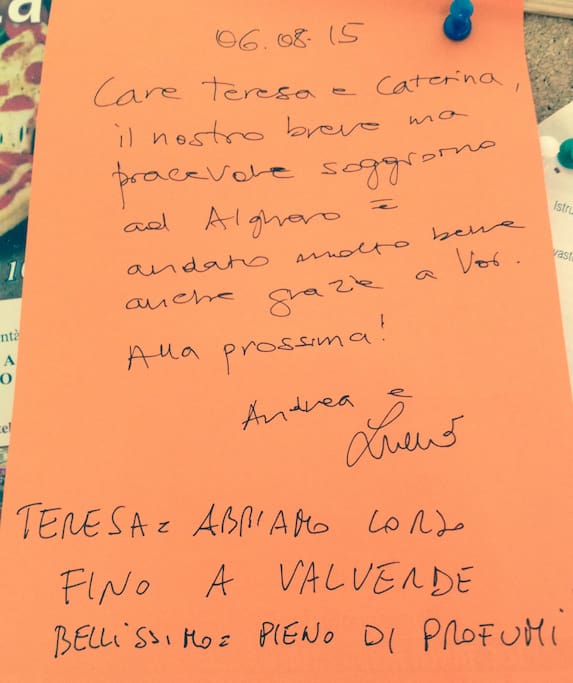 06.08.15
Care Teresa e Caterina,
il nostro breve ma
piacevole soggiorno
ad Alghero è
andato molto bene
anche grazie a Voi.
Alla prossima!
Andrea e
TERESA: ABBIAMO CORSO
FINO A VALVERDE
BELLISSIMO: PIENO DI PROFUMI
Istru
vasta
ntà
A
O
tel